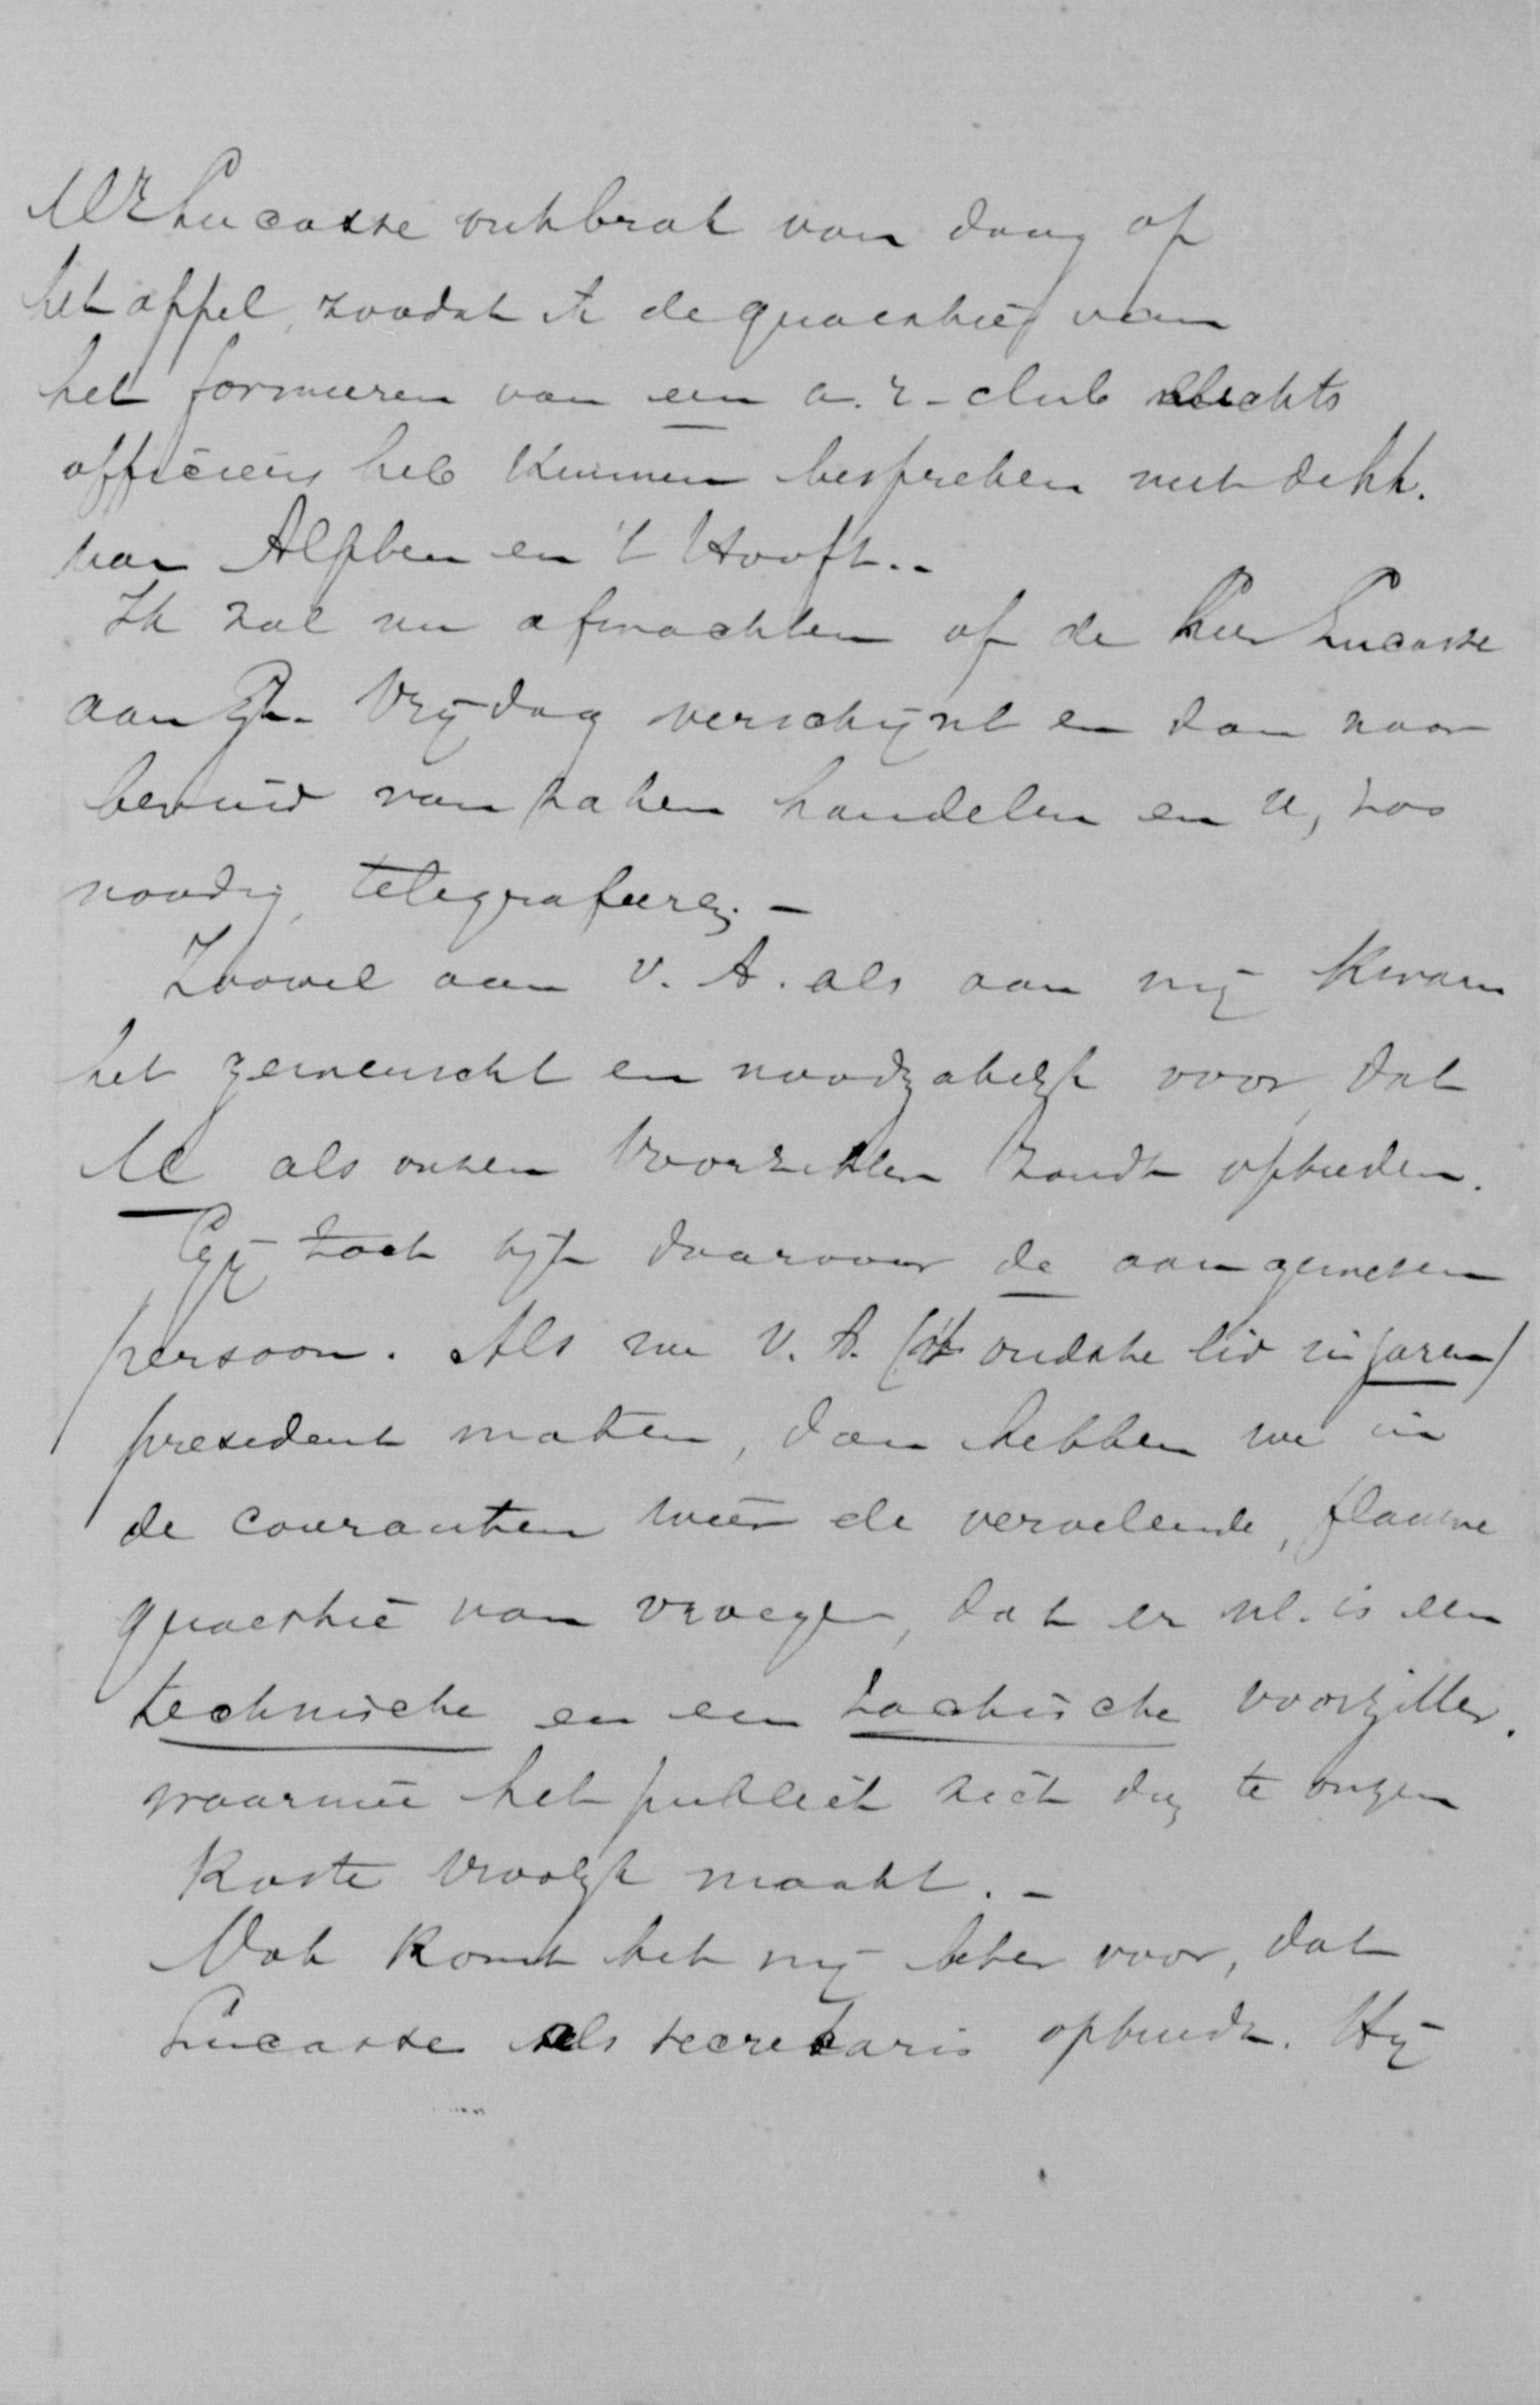 Mr Lucasse ontbrak van daag op
het appel, zoodat ik de quaestie van
het formeeren van een a.r-club slechts
officieus heb kunnen bespreken met de hh.
van Alphen en 't Hooft..
Ik zal nu afwachten of de heer Lucasse
aan Vrijdag verschijnt en dan naar
bevind van zaken handelen en U, zoo
noodig, telegrafeeren. -
Zoowel aan v. A. als aan mij kwam
het gewenscht en noodzakelijk voor, dat
U als onzen Voorzitter zoudt optreden.
Gij toch zijt daarvoor de aangewezen
persoon. Als we v. A. (het oudste lid in jaren)
president maken, dan hebben we in
de couranten weêr de vervelende, flauwe
quaestie van vroeger, dat er nl. is een
technische en een tactische voorzitter,
waarmeê het publiek zich dan te onzen
koste vroolijk maakt. -
Ook komt het mij beter voor, dat
Lucasse als secretaris optreedt. Hij